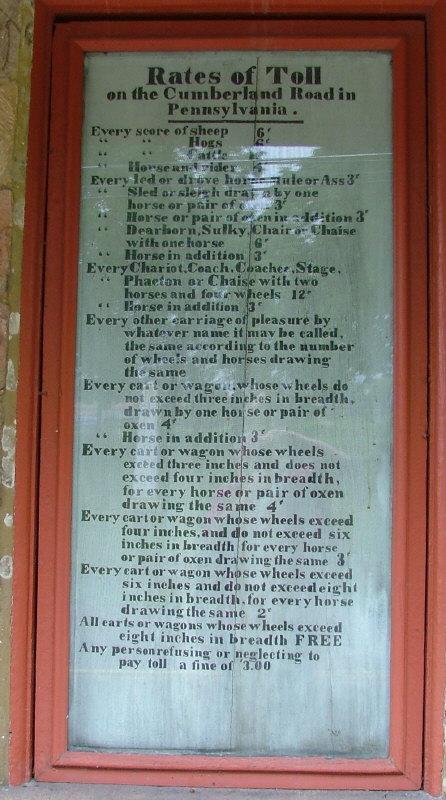 Rates of Toll
on the Cumberland Road in
Pennsylvania.
Every score of sheep 6¢
“ “ Hogs 6¢
“ “ Cattle
“ Horse and rider 4¢
Every led or drove horse, Mule or Ass 3¢
“ Sled or sleigh drawn by one
horse or pair of oxen 3¢
“ Horse or pair of oxen in addition 3¢
“ Dearborn, Sulky, Chair or Chaise
with one horse 6¢
“ Horse in addition 3¢
Every Chariot, Coach, Coachee, Stage,
“ Phaeton or Chaise with two
horses and four wheels 12¢
“ Horse in addition 3¢
Every other carriage of pleasure by
whatever name it may be called,
the same according to the number
of wheels and horses drawing
the same
Every cart or wagon, whose wheels do
not exceed three inches in breadth,
drawn by one horse or pair of
oxen 4¢
“ Horse in addition 3¢
Every cart or wagon whose wheels
exceed three inches and does not
exceed four inches in breadth,
for every horse or pair of oxen
drawing the same 4¢
Every cart or wagon whose wheels exceed
four inches, and do not exceed six
inches in breadth for every horse
or pair of oxen drawing the same 3¢
Every cart or wagon whose wheels exceed
six inches and do not exceed eight
inches in breadth, for every horse
drawing the same 2¢
All carts or wagons whose wheels exceed
eight inches in breadth FREE
Any person refusing or neglecting to
pay toll a fine of 3.00